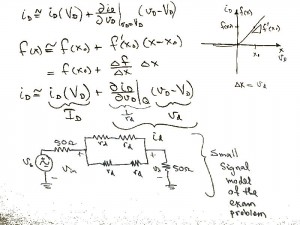 i_D ≅ i_D(V_D) + ∂i_D/∂v_D |_{v_D=V_D} (v_D-V_D)
f(x) ≅ f(x_0) + f'(x_0)(x-x_0)
= f(x_0) + Δf/Δx Δx
i_D ≅ i_D(V_D) + ∂i_D/∂v_D |_Q (v_D-V_D)
I_D 1/r_d v_d
i_D f(x)
f(x_0)
f'(x_0)
x_0 x
v_D
Δx = v_d
50Ω r_d r_d i_d
+ + +
v_in r_d r_d v_o 50Ω
- - -
Small
signal
model
of the
exam
problem